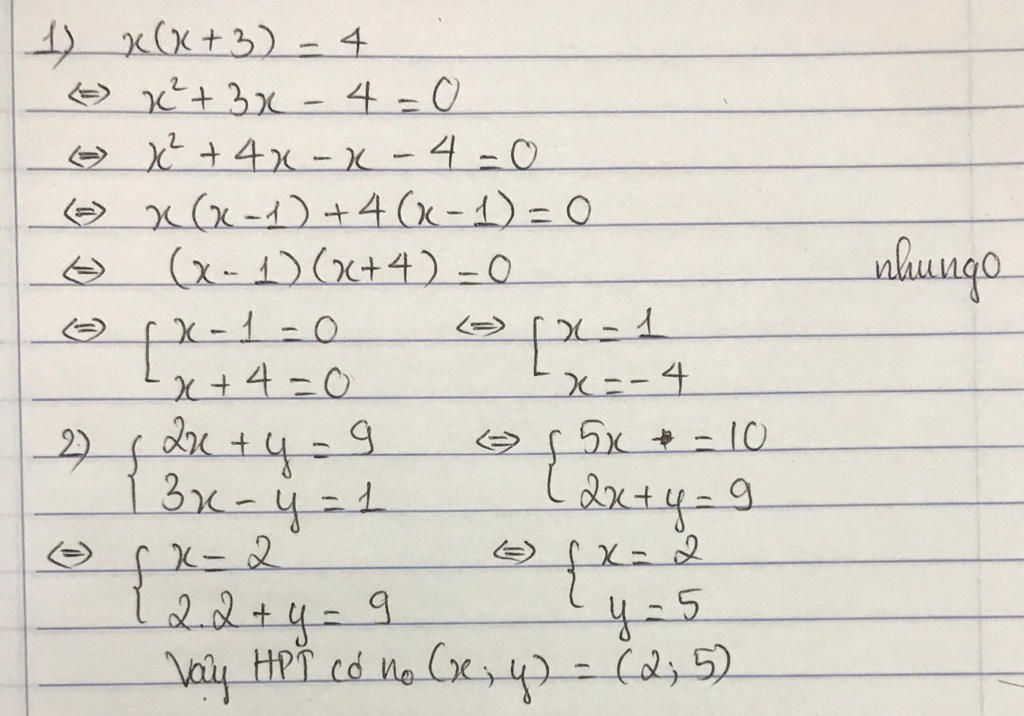 1) x(x+3) = 4
⇔ x² + 3x - 4 = 0
⇔ x² + 4x - x - 4 = 0
⇔ x(x-1) + 4(x-1) = 0
⇔ (x-1)(x+4) = 0
nhungo
⇔ [ x - 1 = 0 ⇔ [ x = 1
x + 4 = 0 x = -4
2) { 2x + y = 9 ⇔ { 5x = 10
3x - y = 1 2x + y = 9
⇔ { x = 2 ⇔ { x = 2
2.2 + y = 9 y = 5
Vậy HPT có no (x; y) = (2; 5)